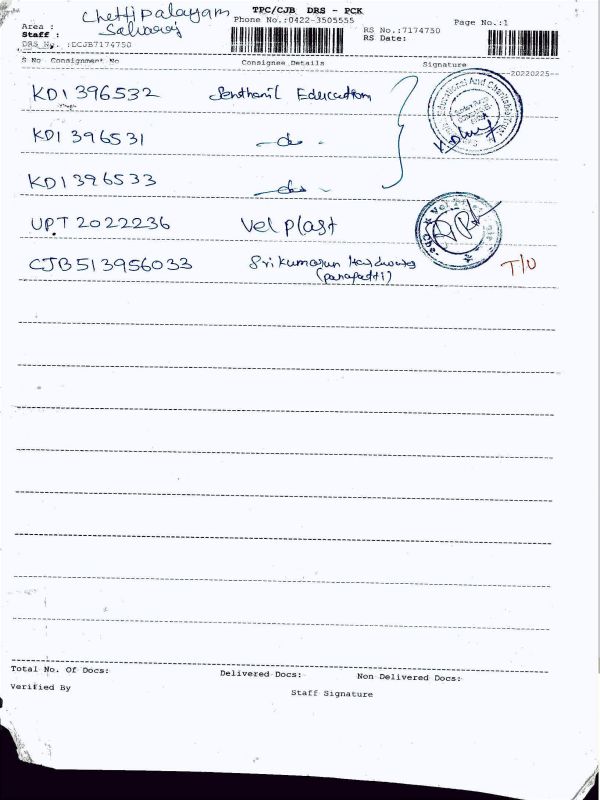 TPC/CJB DRS - PCK
Area : Chettipalayam
Phone No.:0422-3505555
Page No.:1
Staff : Selvaraj
RS No.:7174750
RS Date:
DRS No. :ECJB7174750
S No Consignment No Consignee Details Signature
20220225
KD1396532 Senthamil Education
KD1396531 -do-
KD1396533 -do-
Educational And Charitable
UPT2022236 Vel plast
CJB513956033 Srikumaran Hardwares T/U
Total No. Of Docs: Delivered Docs: Non Delivered Docs:
Verified By
Staff Signature